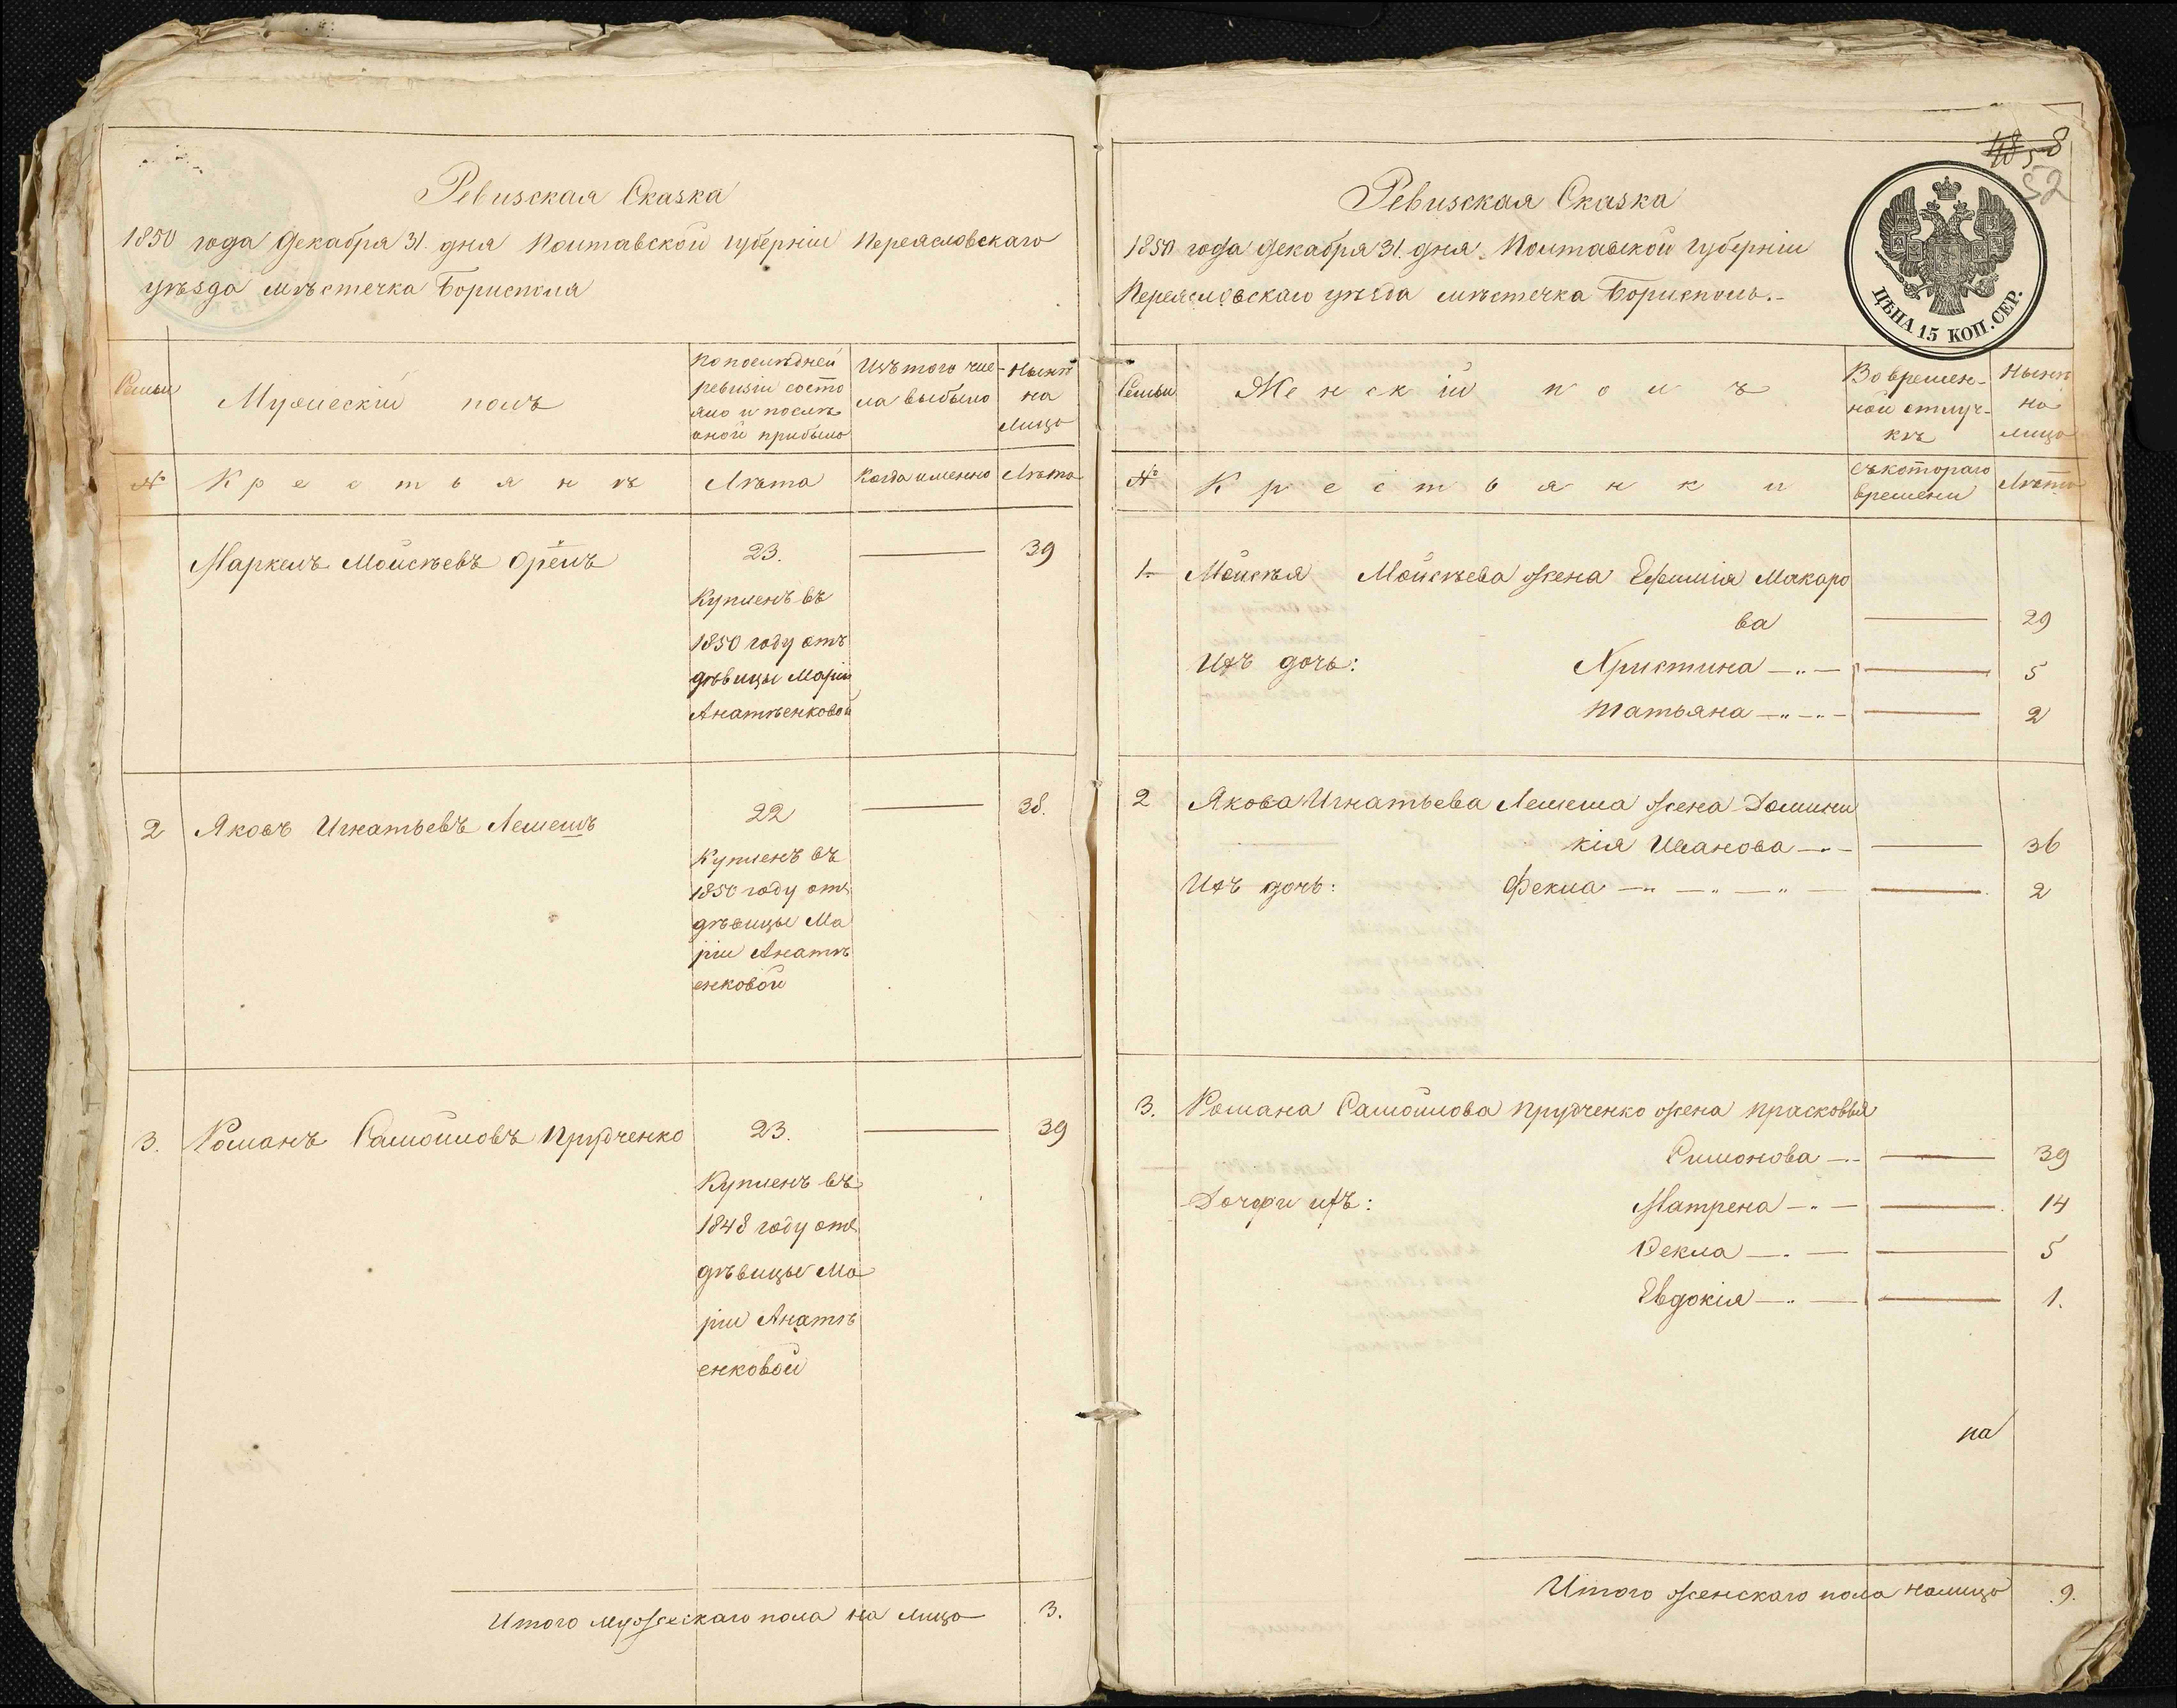 Ревизская Сказка
1850 года Декабря 31. дня Полтавской губерніи Переясловскаго
уѣзда мѣстечка Борисполя
Семьи
Мужескій полъ
По послѣдней
ревизіи состо
яло и послѣ
оной прибыло
Изъ того чис-
ла выбыло
Нынѣ
на
лицо
№
Крестьянѣ
Лѣта
Когда именно
Лѣта
Маркелъ Мойсѣевъ Орелъ
23.
39
Купленъ въ
1850 году отъ
дѣвицы Маріи
Анатѣенковой
2
Яковъ Игнатьевъ Лемешъ
22
38.
Купленъ въ
1850 году отъ
дѣвицы Ма
ріи Анатѣ
енковой
3.
Романъ Самойловъ Прудченко
23.
39
Купленъ въ
1848 году отъ
дѣвицы Ма
ріи Анатѣ
енковой
Итого мужескаго пола на лицо 3.
52
Ревизская Сказка
1850 года Декабря 31. дня Полтавской Губерніи
Переясловскаго уѣзда мѣстечка Борисполь.-
ЦѢНА 15 КОП. СЕР.
Семьи
Женскій полъ
Во времен-
ной отлуч-
кѣ
Нынѣ
на
лицо
№
Крестьянки
Съ котораго
времени
Лѣта
1. Мойсѣя Мойсѣева жена Ефимія Макаро
ва 29
Ихъ дочь: Христина 5
Татьяна 2
2 Якова Игнатьева Лемеша жена Домини
кія Иванова 36
Ихъ дочь: Фекла 2
3. Романа Самойлова Прудченко жена Прасковья
Симонова 39
Дочери ихъ: Матрена 14
Фекла 5
Евдокія 1.
на
Итого женскаго пола налицо 9.